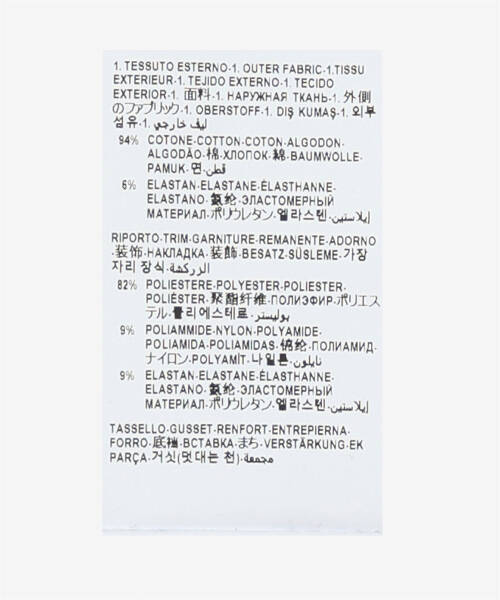 1. TESSUTO ESTERNO-1. OUTER FABRIC-1.TISSU
EXTERIEUR-1. TEJIDO EXTERNO-1. TECIDO
EXTERIOR-1. 面料-1. НАРУЖНАЯ ТКАНЬ-1. 外側
のファブリック-1. OBERSTOFF-1. DIŞ KUMAŞ-1. 외부
섬유-1. ليف خارجي
94% COTONE-COTTON-COTON-ALGODON-
ALGODÃO-棉-ХЛОПОК-綿-BAUMWOLLE-
PAMUK-면-قطن
6% ELASTAN-ELASTANE-ÉLASTHANNE-
ELASTANO-氨纶-ЭЛАСТОМЕРНЫЙ
МАТЕРИАЛ-ポリウレタン-엘라스텐-إيلاستين
RIPORTO-TRIM-GARNITURE-REMANENTE-ADORNO
-装饰-НАКЛАДКА-装飾-BESATZ-SÜSLEME-가장
자리 장식-الزركشة
82% POLIESTERE-POLYESTER-POLIESTER-
POLIÉSTER-聚酯纤维-ПОЛИЭФИР-ポリエス
テル-폴리에스테르-بوليستر
9% POLIAMMIDE-NYLON-POLYAMIDE-
POLIAMIDA-POLIAMIDAS-锦纶-ПОЛИАМИД-
ナイロン-POLYAMİT-나일론-نايلون
9% ELASTAN-ELASTANE-ÉLASTHANNE-
ELASTANO-氨纶-ЭЛАСТОМЕРНЫЙ
МАТЕРИАЛ-ポリウレタン-엘라스텐-إيلاستين
TASSELLO-GUSSET-RENFORT-ENTREPIERNA-
FORRO-底裆-ВСТАВКА-まち-VERSTÄRKUNG-EK
PARÇA-거싯(덧대는 천)-مجمعة